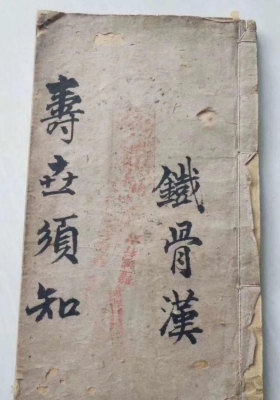 鐵骨漢
壽世須知